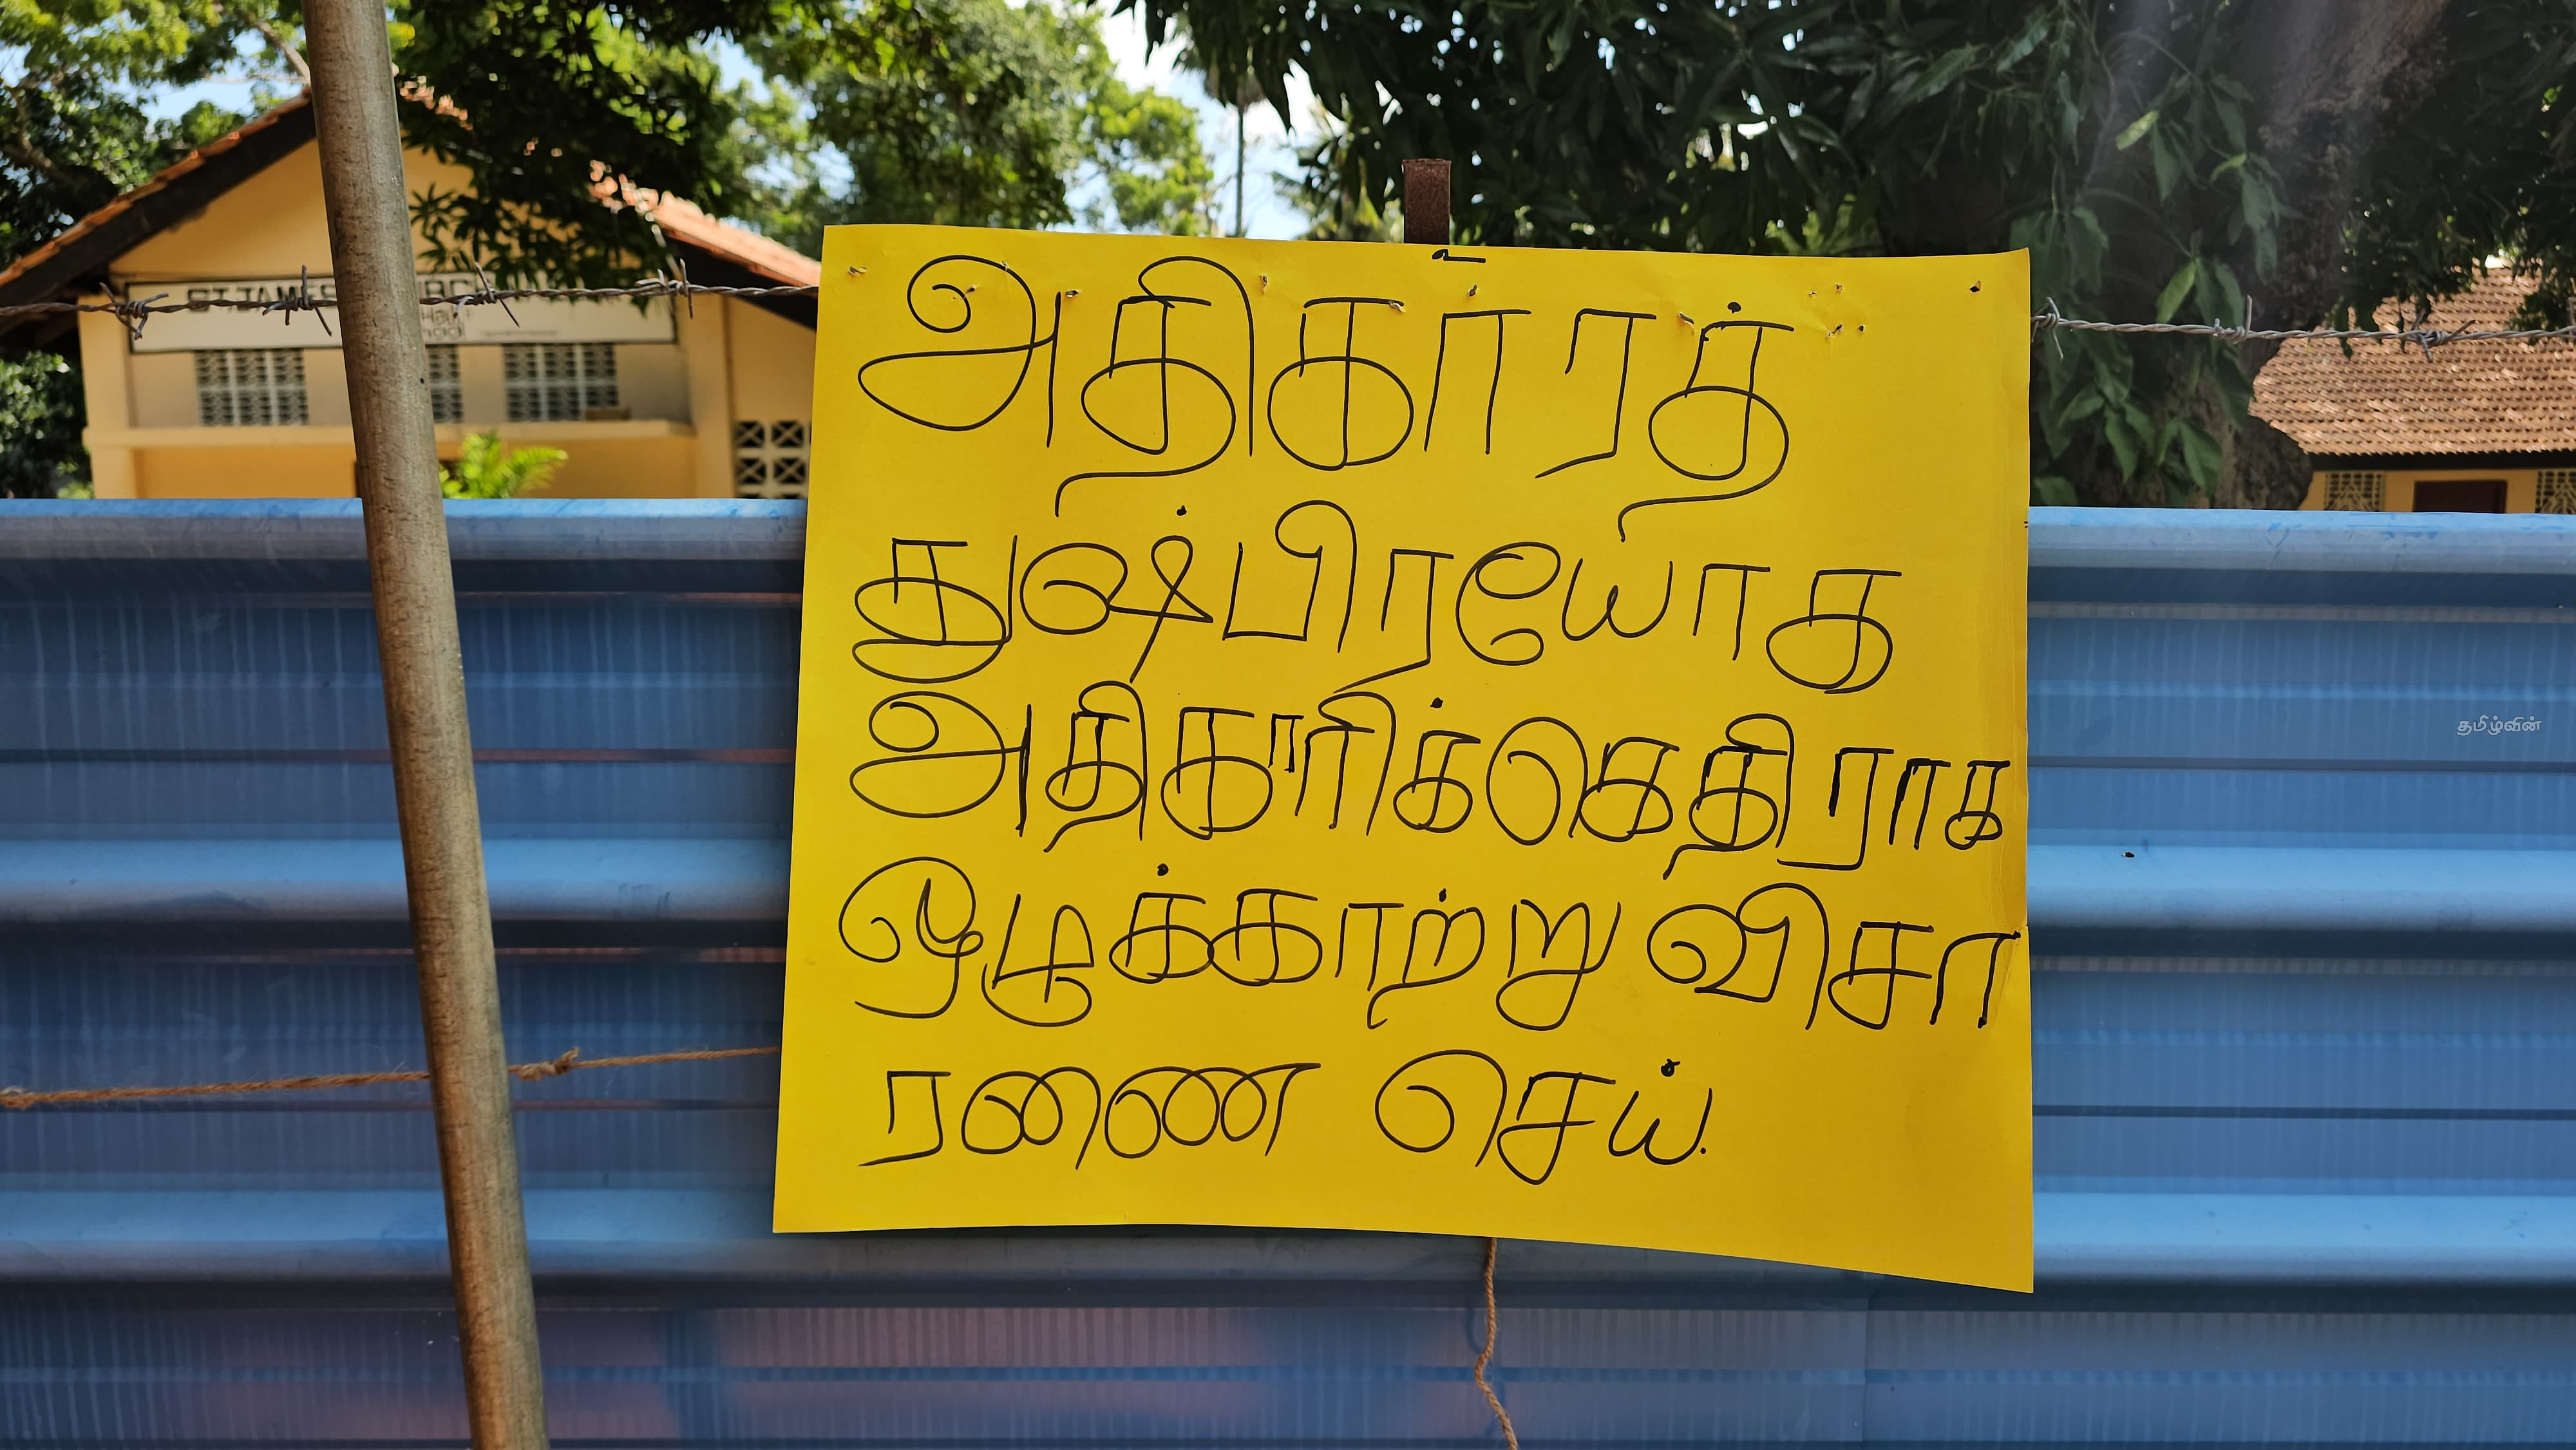 அதிகாரத்
துஷ்பிரயோக
அதிகாரிக்கெதிராக
ஒழுக்காற்று விசா
ரணை செய்.
தமிழ்வின்